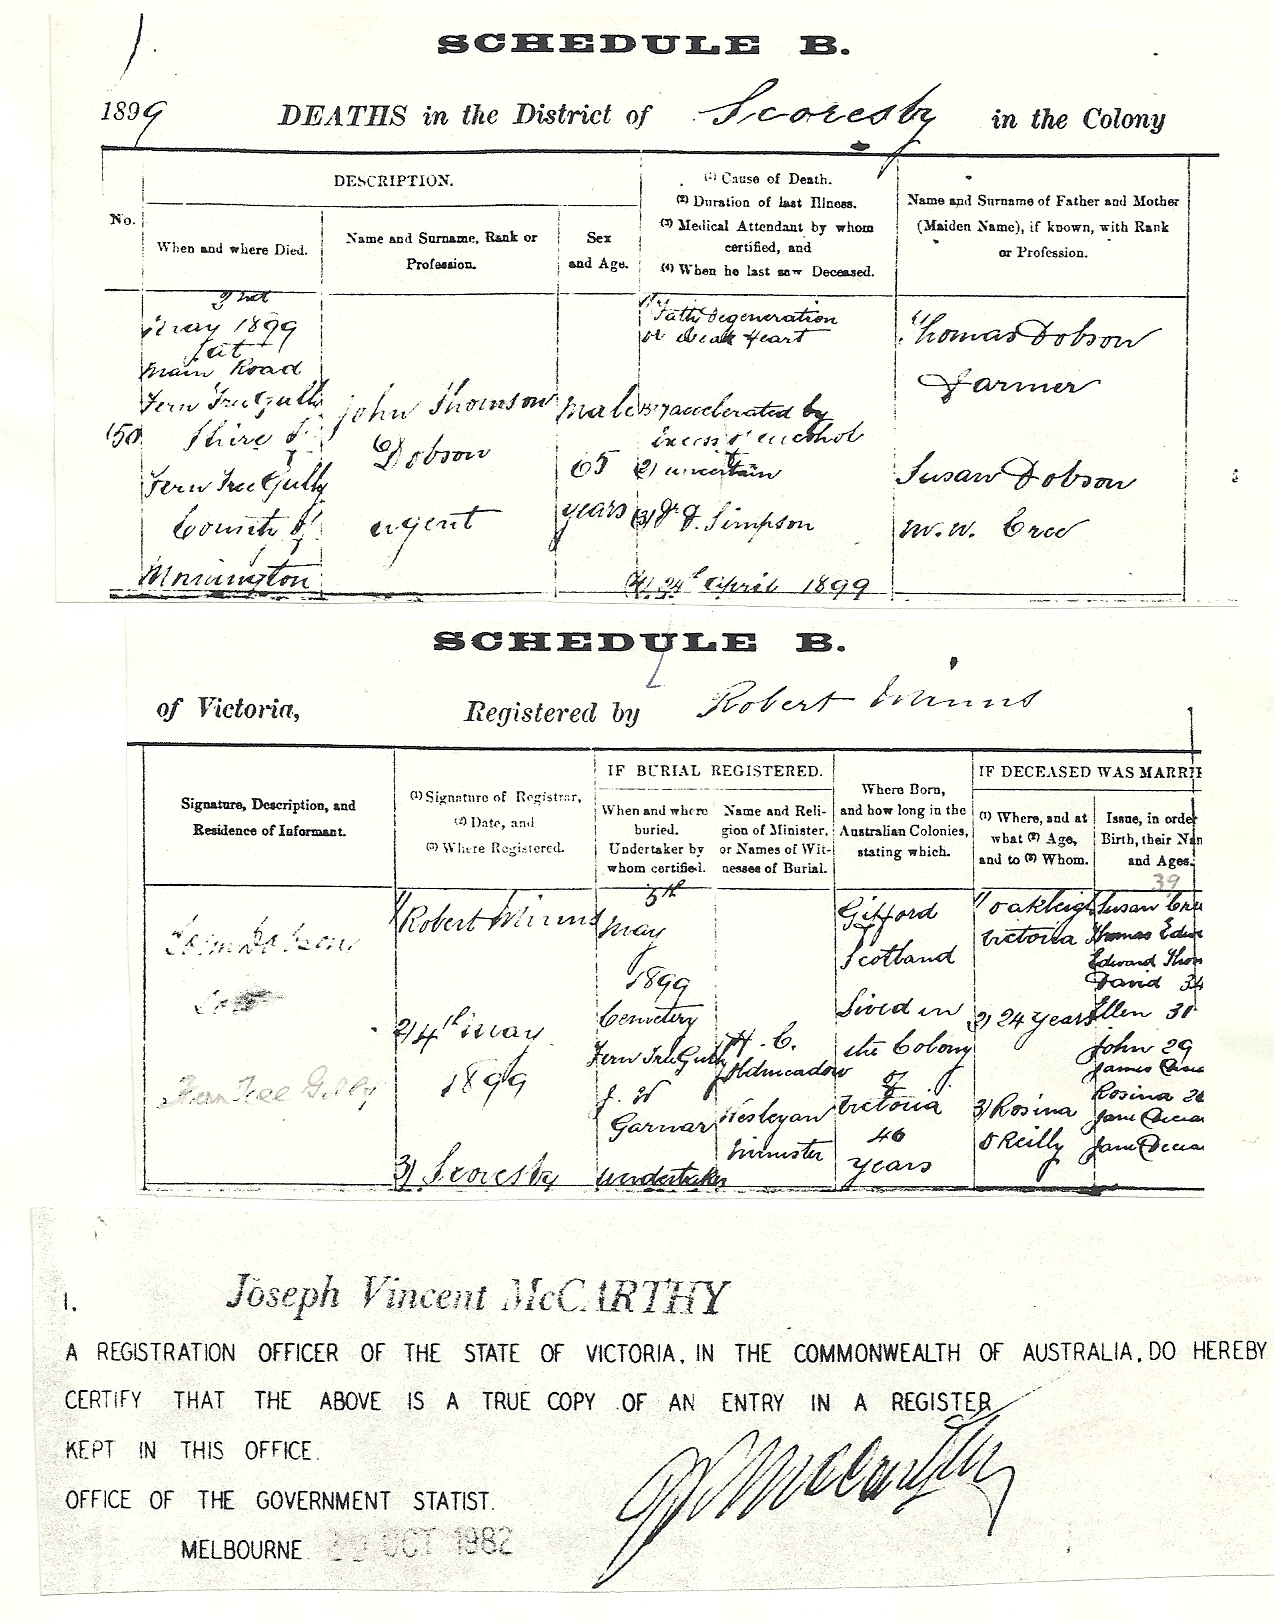 SCHEDULE B.
1899 DEATHS in the District of Scoresby in the Colony
DESCRIPTION.
No.
When and where Died.
Name and Surname, Rank or
Profession.
Sex
and Age.
(1) Cause of Death.
(2) Duration of last Illness.
(3) Medical Attendant by whom
certified, and
(4) When he last saw Deceased.
Name and Surname of Father and Mother
(Maiden Name), if known, with Rank
or Profession.
2nd
May 1899
at
Main Road
Fern Tree Gully
Shire of
Fern Tree Gully
County of
Mornington
John Thomson
Dobson
agent
Male
65
years
1) Fatty Degeneration
or weak Heart
accelerated by
excess of alcohol
2) uncertain
3) Simpson
4) 24th April 1899
Thomas Dobson
Farmer
Susan Dobson
Cree
SCHEDULE B.
of Victoria, Registered by Robert Minns
Signature, Description, and
Residence of Informant.
(1) Signature of Registrar,
(2) Date, and
(3) Where Registered.
IF BURIAL REGISTERED.
When and where
buried.
Undertaker by
whom certified.
Name and Reli-
gion of Minister,
or Names of Wit-
nesses of Burial.
Where Born,
and how long in the
Australian Colonies,
stating which.
IF DECEASED WAS MARRI
(1) Where, and at
what (2) Age,
and to (3) Whom.
Issue, in orde
Birth, their Na
and Ages.
39
Fern Tree Gully
1) Robert Minns
2) 4th May
1899
3) Scoresby
5th
May
1899
Cemetery
Fern Tree Gully
J. W
Garnar
undertaker
H. C.
Wesleyan
Minister
Gifford
Scotland
Lived in
the Colony
of
Victoria
46
years
1) Oakleigh
Victoria
2) 24 years
3) Rosina
O'Reilly
Susan
Thomas Edw
Edward Thom
David 34
Ellen 31
John 29
James
Rosina
Jane
Jane
I. Joseph Vincent McCARTHY
A REGISTRATION OFFICER OF THE STATE OF VICTORIA, IN THE COMMONWEALTH OF AUSTRALIA, DO HEREBY
CERTIFY THAT THE ABOVE IS A TRUE COPY OF AN ENTRY IN A REGISTER
KEPT IN THIS OFFICE.
OFFICE OF THE GOVERNMENT STATIST.
MELBOURNE OCT 1982